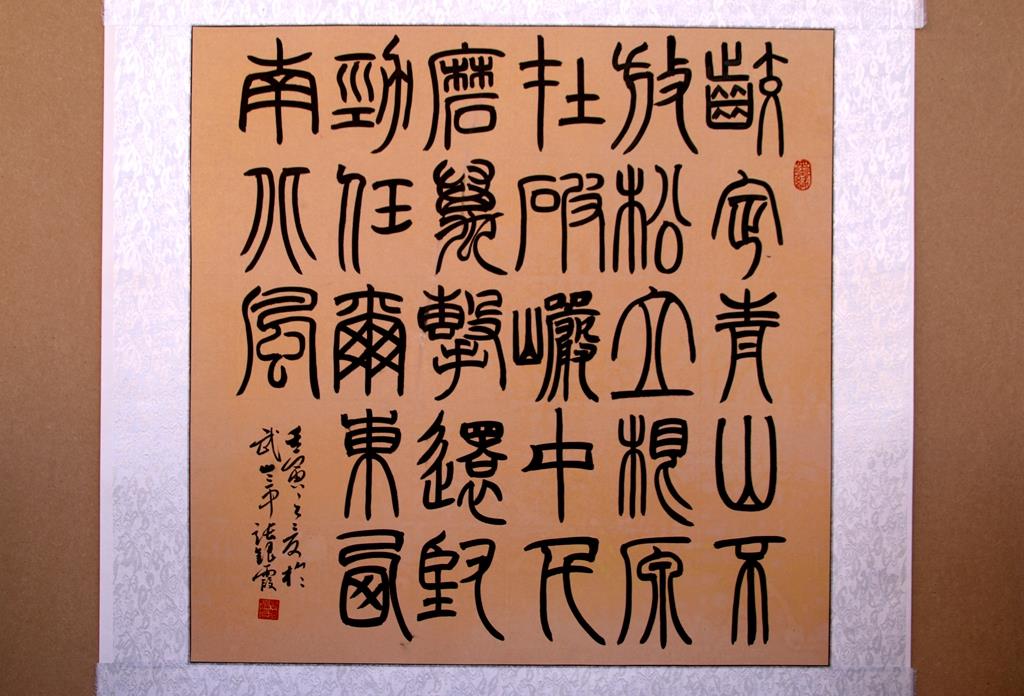 齩定青山不
放松立根原
在破巖中千
磨萬擊還堅
勁任爾東西
南北風
壬寅之夏於
武張銀霞